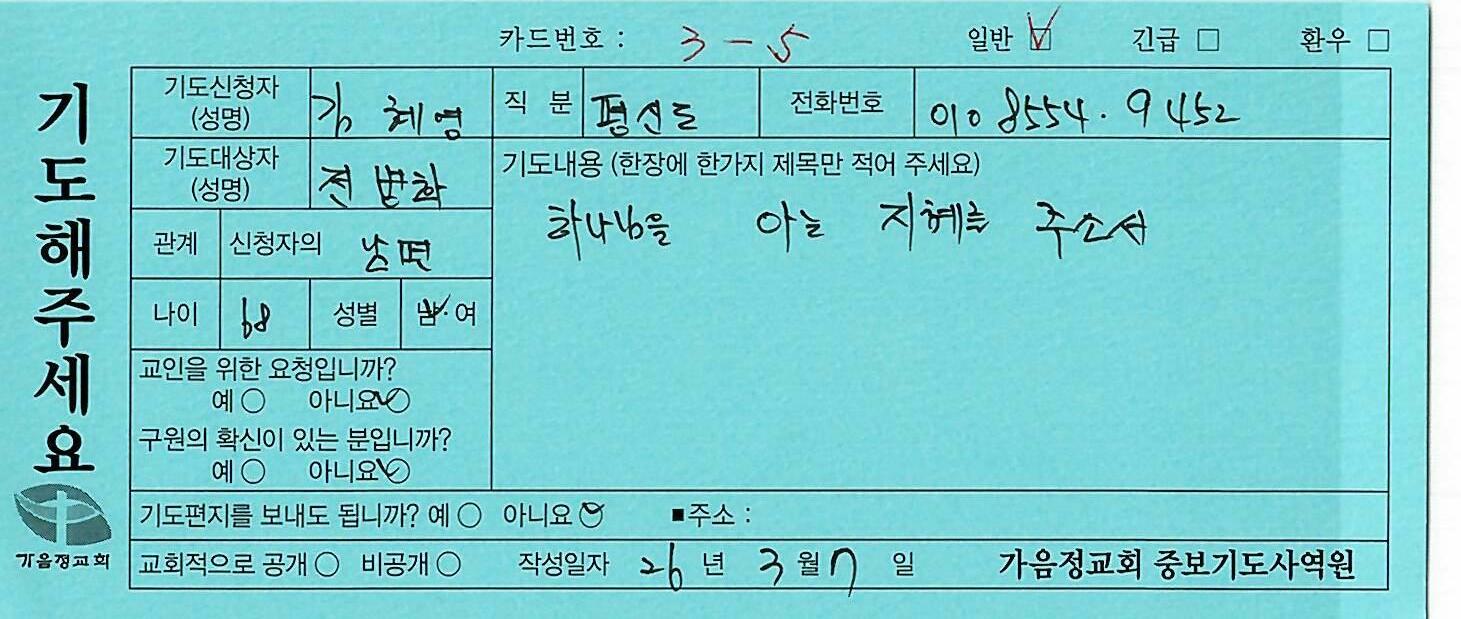 카드번호 : 3 - 5 일반 ☑ 긴급 □ 환우 □
기도해주세요
기도신청자 (성명) 김혜영 직 분 평신도 전화번호 010 8554. 9452
기도대상자 (성명) 전병화 기도내용 (한장에 한가지 제목만 적어 주세요)
하나님을 아는 지혜를 주소서
관계 신청자의 남편
나이 68 성별 남 · 여
교인을 위한 요청입니까?
예 ○ 아니요 ○
구원의 확신이 있는 분입니까?
예 ○ 아니요 ○
기도편지를 보내도 됩니까? 예 ○ 아니요 ○ ■주소 :
가음정교회
교회적으로 공개 ○ 비공개 ○ 작성일자 26 년 3 월 7 일 가음정교회 중보기도사역원